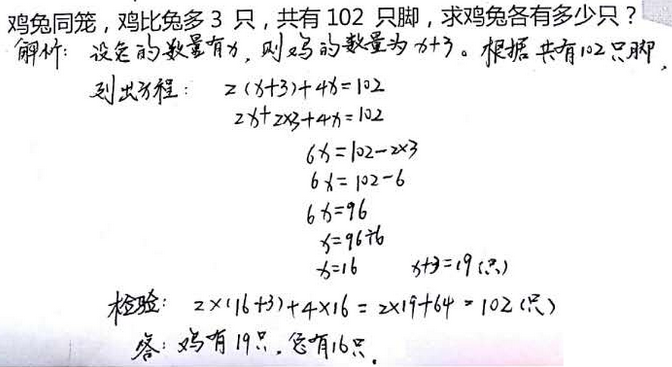 鸡兔同笼，鸡比兔多 3 只，共有 102 只脚，求鸡兔各有多少只？
解析：设兔的数量有x，则鸡的数量为x+3。根据共有102只脚，
列出方程：2(x+3)+4x=102
2x+2×3+4x=102
6x=102-2×3
6x=102-6
6x=96
x=96÷6
x=16 x+3=19(只)
检验：2×(16+3)+4×16=2×19+64=102(只)
答：鸡有19只，兔有16只。